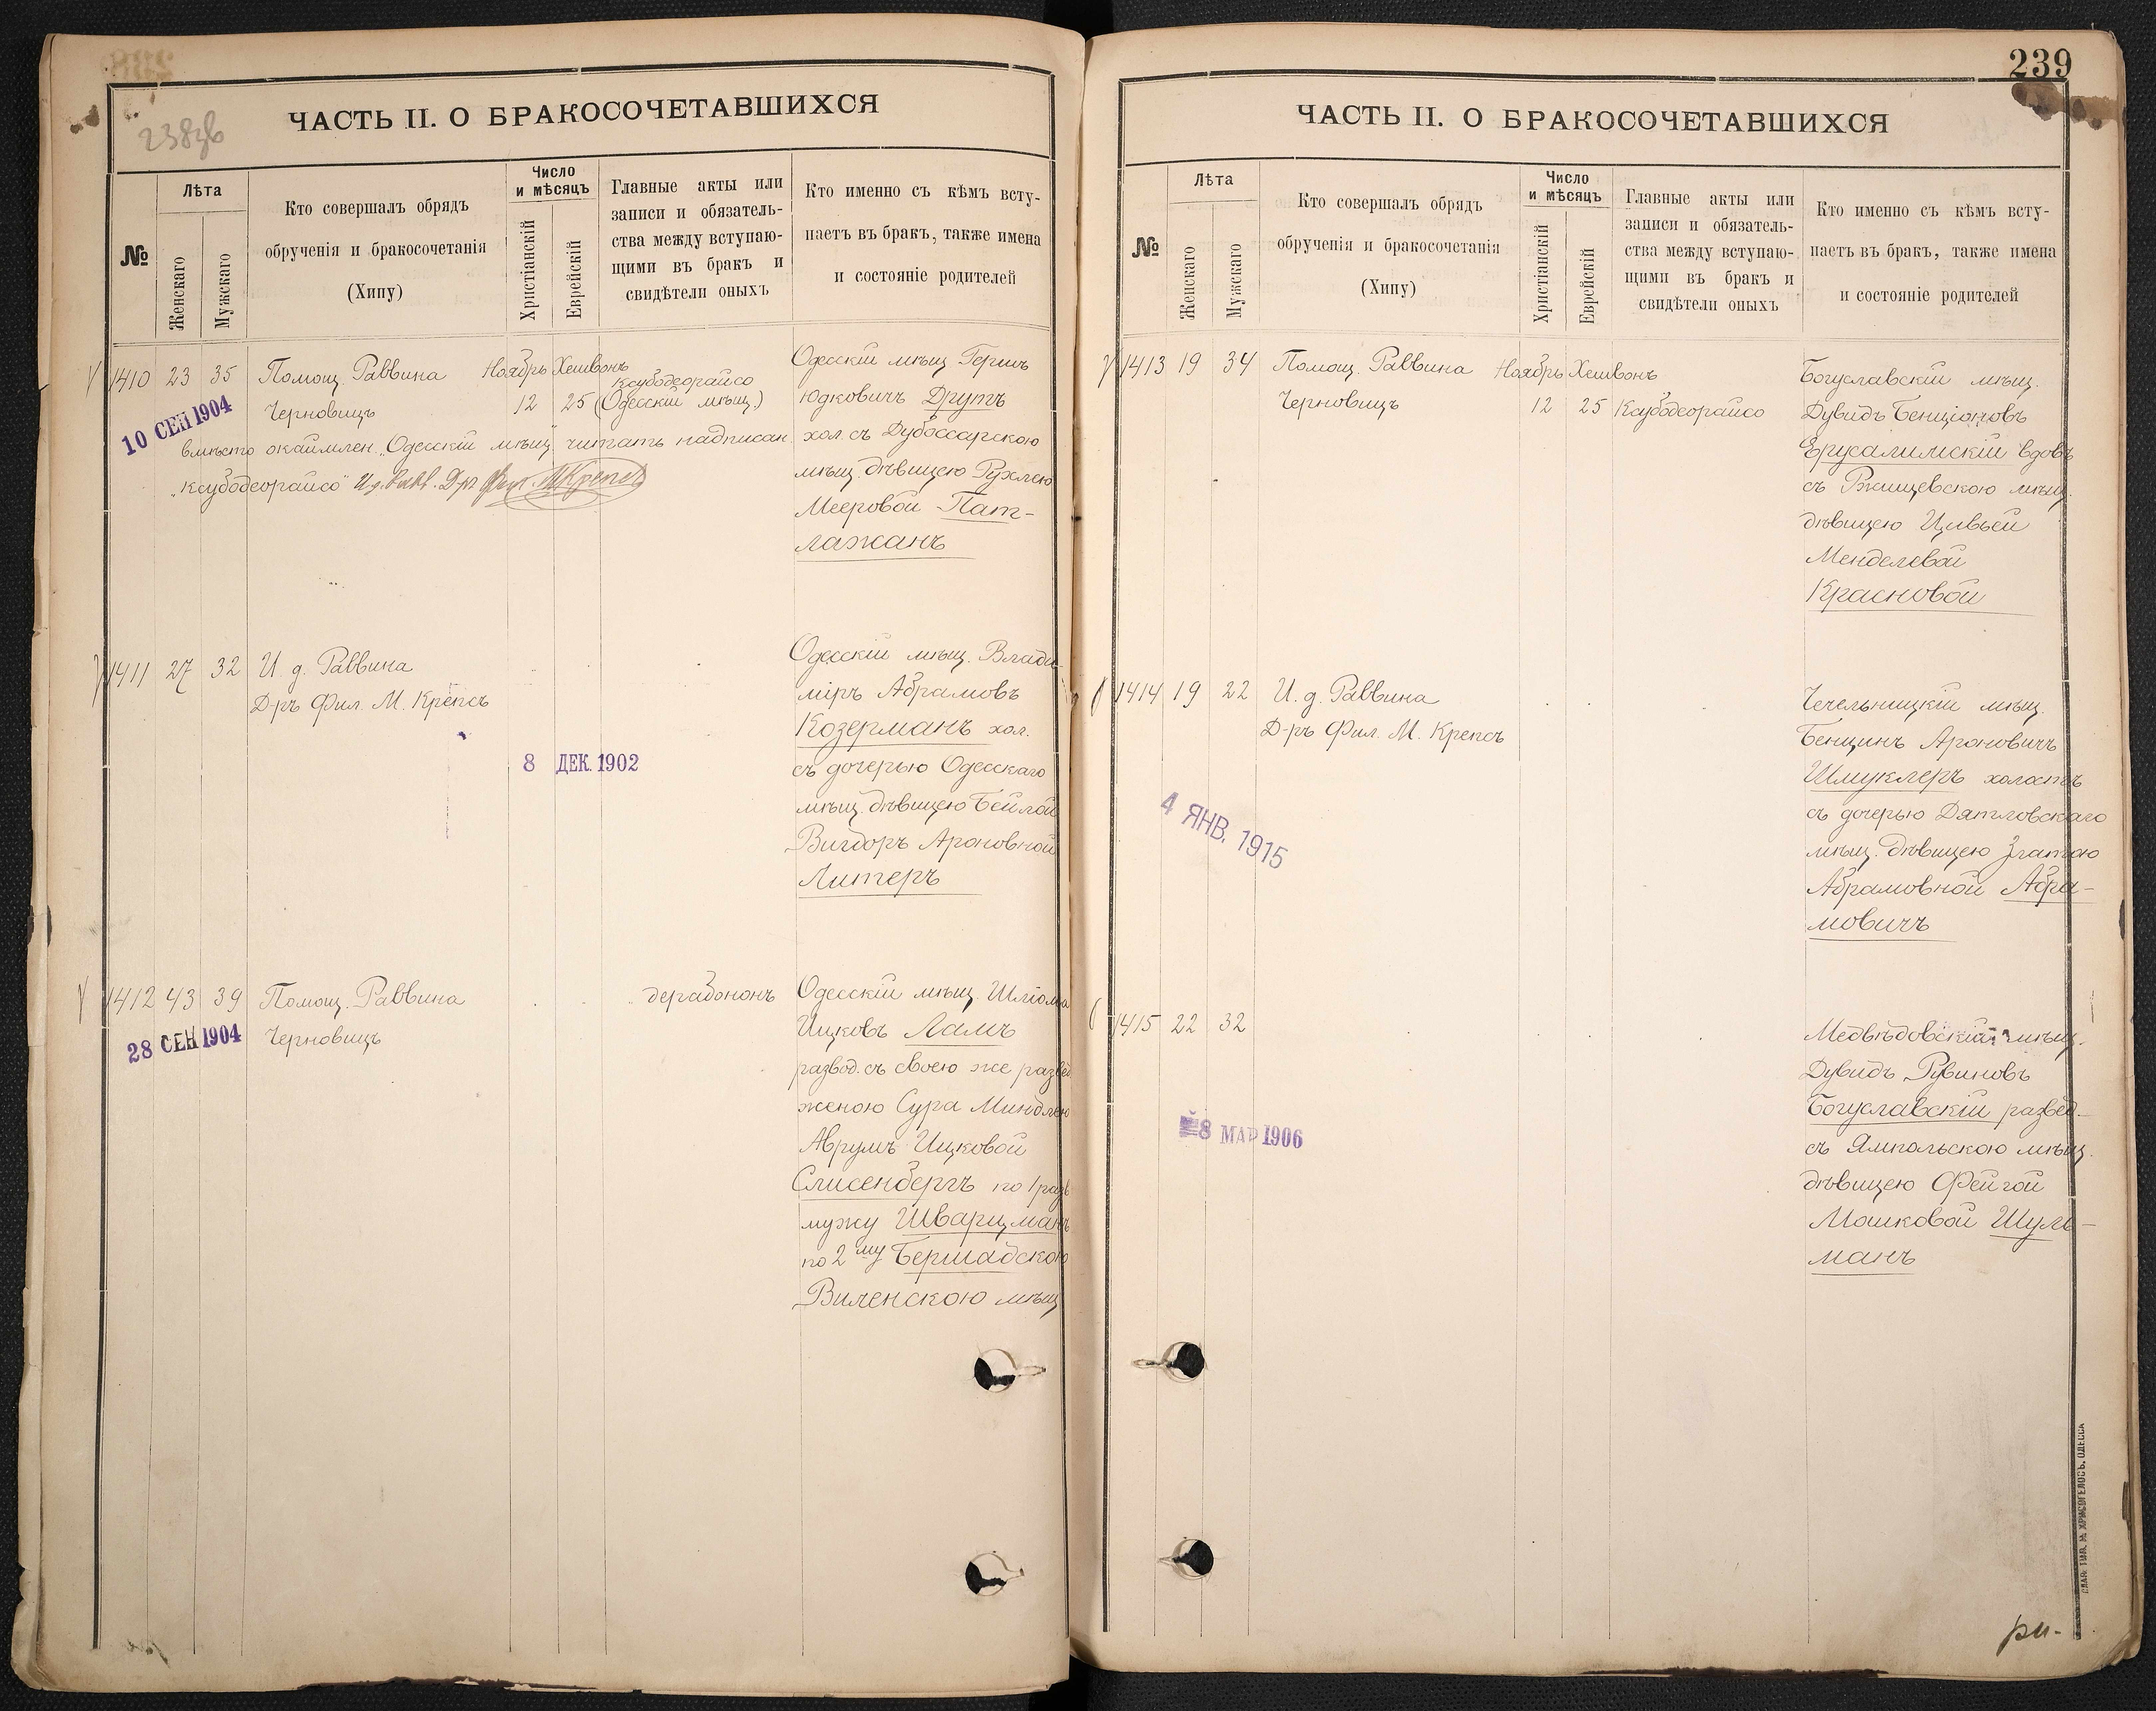 238зв
ЧАСТЬ II. О БРАКОСОЧЕТАВШИХСЯ
№
Лѣта
Женскаго
Мужскаго
Кто совершалъ обрядъ
обрученія и бракосочетанія
(Хипу)
Число
и мѣсяцъ
Христіанскій
Еврейскій
Главные акты или
записи и обязатель-
ства между вступаю-
щими въ бракъ и
свидѣтели оныхъ
Кто именно съ кѣмъ всту-
паетъ въ бракъ, также имена
и состояніе родителей
1410 23 35 Помощ. Раввина Ноябрь Хешвонъ
Ксубодеорайсо
Черновицъ 12 25 (Одесскій мѣщ.)
10 СЕН 1904
вмѣсто окаймлен. „Одесскій мѣщ" читать надписан.
„ксубодеорайсо" И.д. Равв. Д-ръ Фил. М Крепсъ
Одесскій мѣщ Гершъ
Юдковичъ Друтъ
хол. съ Дубоссарскою
мѣщ. дѣвицею Рухлею
Мееровой Пат-
лажанъ
1411 27 32 И. д. Раввина
Д-ръ Фил. М. Крепсъ
8 ДЕК. 1902
Одесскій мѣщ. Влади-
міръ Абрамовъ
Козерманъ хол.
съ дочерью Одесскаго
мѣщ. дѣвицею Бейлой
Вигдоръ Ароновной
Литеръ
1412 43 39 Помощ. Раввина
Черновицъ
дерабононъ
28 СЕН 1904
Одесскій мѣщ. Шліома
Ицковъ Ламъ
развод. съ своею же развед
женою Сура Миндлею
Аврумъ Ицковой
Слисенбергъ по 1 разв
мужу Шварцманъ
по 2му Бершадскою
Виленскою мѣщ
239
ЧАСТЬ II. О БРАКОСОЧЕТАВШИХСЯ
№
Лѣта
Женскаго
Мужскаго
Кто совершалъ обрядъ
обрученія и бракосочетанія
(Хипу)
Число
и мѣсяцъ
Христіанскій
Еврейскій
Главные акты или
записи и обязатель-
ства между вступаю-
щими въ бракъ и
свидѣтели оныхъ
Кто именно съ кѣмъ всту-
паетъ въ бракъ, также имена
и состояніе родителей
1413 19 34 Помощ. Раввина Ноябрь Хешвонъ
Черновицъ 12 25 Ксубодеорайсо
Богуславскій мѣщ.
Дувидъ Бенціоновъ
Ерусалимскій вдовъ
съ Ржищевскою мѣщ.
дѣвицею Цивьей
Менделевой
Красновой
1414 19 22 И. д. Раввина
Д-ръ Фил. М. Крепсъ
4 ЯНВ. 1915
Чечельницкій мѣщ.
Бенцинъ Ароновичъ
Шмуклеръ холостъ
съ дочерью Дятловскаго
мѣщ. дѣвицею Златою
Абрамовной Абра-
мовичъ
1415 22 32
8 МАР 1906
Медвѣдовскій мѣщ.
Дувидъ Рувиновъ
Богуславскій развед-
съ Ямпольскою мѣщ.
дѣвицею Фейгой
Мошковой Шуль-
манъ
СЛАВ. ТИП. М. ХРИСОГЕЛОСЪ. ОДЕССА